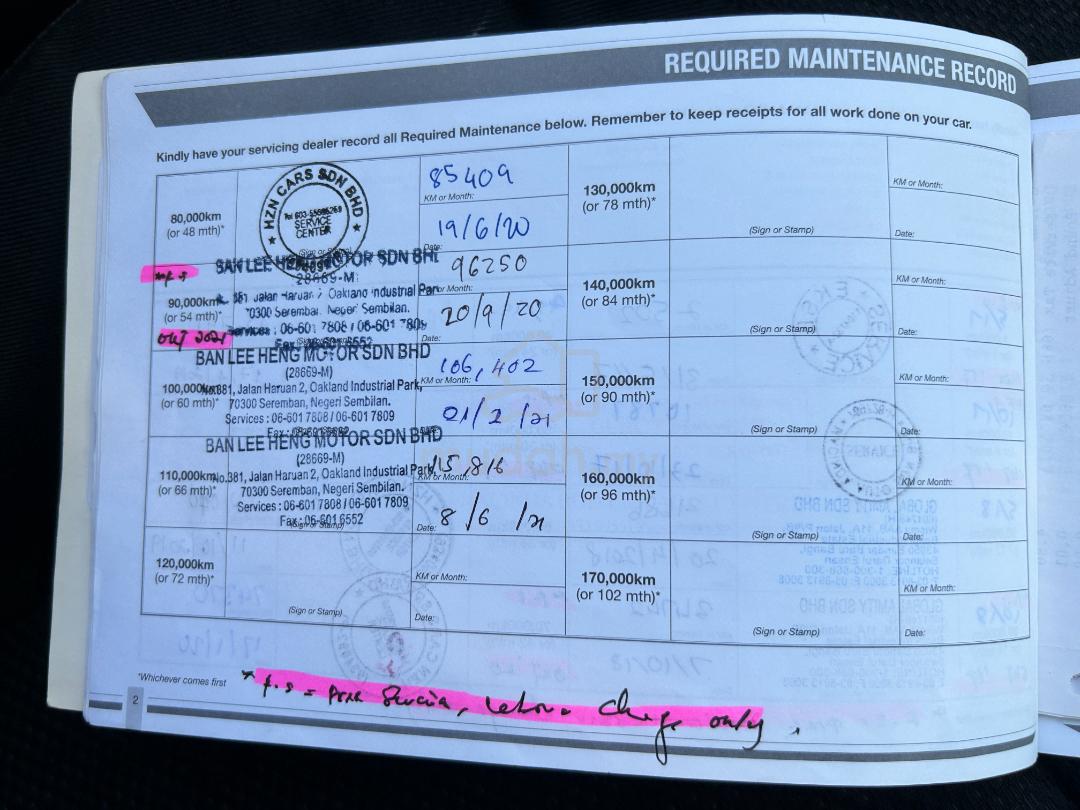 REQUIRED MAINTENANCE RECORD
Kindly have your servicing dealer record all Required Maintenance below. Remember to keep receipts for all work done on your car.
80,000km
(or 48 mth)*
HZN CARS SDN BHD
SERVICE
CENTER
(Sign or Stamp)
85409
KM or Month:
19/6/20
Date:
*f.s
90,000km
(or 54 mth)*
only 2021
BAN LEE HENG MOTOR SDN BHD
28669-M
381 Jalan Haruan 2 Oakland Industrial Park
70300 Seremban, Negeri Sembilan.
Services : 06-601 7808 / 06-601 7809
Fax : 06-601 6552
96250
KM or Month:
20/9/20
Date:
100,000km
(or 60 mth)*
BAN LEE HENG MOTOR SDN BHD
(28669-M)
No.381, Jalan Haruan 2, Oakland Industrial Park,
70300 Seremban, Negeri Sembilan.
Services : 06-601 7808 / 06-601 7809
106,402
KM or Month:
01/2/21
110,000km
(or 66 mth)*
BAN LEE HENG MOTOR SDN BHD
(28669-M)
No.381, Jalan Haruan 2, Oakland Industrial Park,
70300 Seremban, Negeri Sembilan.
Services : 06-601 7808 / 06-601 7809
Fax : 06-601 6552
(Sign or Stamp)
115,816
KM or Month:
8/6/21
Date:
120,000km
(or 72 mth)*
(Sign or Stamp)
KM or Month:
Date:
130,000km
(or 78 mth)*
(Sign or Stamp)
KM or Month:
Date:
140,000km
(or 84 mth)*
(Sign or Stamp)
KM or Month:
Date:
150,000km
(or 90 mth)*
(Sign or Stamp)
KM or Month:
Date:
160,000km
(or 96 mth)*
(Sign or Stamp)
KM or Month:
Date:
170,000km
(or 102 mth)*
(Sign or Stamp)
KM or Month:
Date:
*Whichever comes first
* f.s = Free Service, Labour charge only.
2